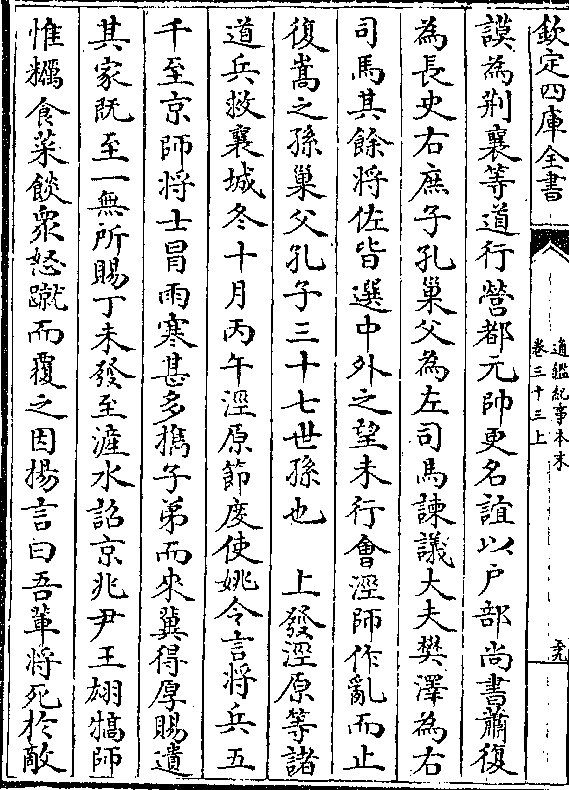 欽定四庫全書
通鑑紀事本末
卷三十三上
謨為荆襄等道行營都元帥更名誼以户部尚書蕭復
為長史右庶子孔巢父為左司馬諫議大夫樊澤為右
司馬其餘將佐皆選中外之望未行會涇師作亂而止
復嵩之孫巢父孔子三十七世孫也　上發涇原等諸
道兵救襄城冬十月丙午涇原節度使姚令言將兵五
千至京師將士冒雨寒甚多擕子弟而來冀得厚賜遺
其家既至一無所賜丁未發至滻水詔京兆尹王翃犒師
惟糲食菜餤衆怒蹴而覆之因揚言曰吾輩將死於敵